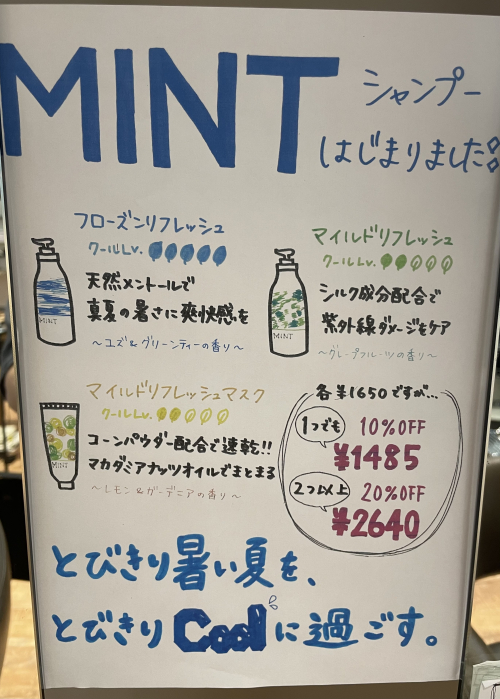 MINT シャンプー
はじまりました!!
フローズンリフレッシュ
クールLv.
天然メントールで
真夏の暑さに爽快感を
～ユズ&グリーンティーの香り～
MINT
マイルドリフレッシュ
クールLv.
シルク成分配合で
紫外線ダメージをケア
～グレープフルーツの香り～
MINT
マイルドリフレッシュマスク
クールLv.
コーンパウダー配合で速乾!!
マカダミアナッツオイルでまとまる
～レモン&ガーデニアの香り～
MINT
各¥1650ですが…
1つでも 10%OFF
¥1485
2つ以上 20%OFF
¥2640
とびきり暑い夏を、
とびきりCoolに過ごす。